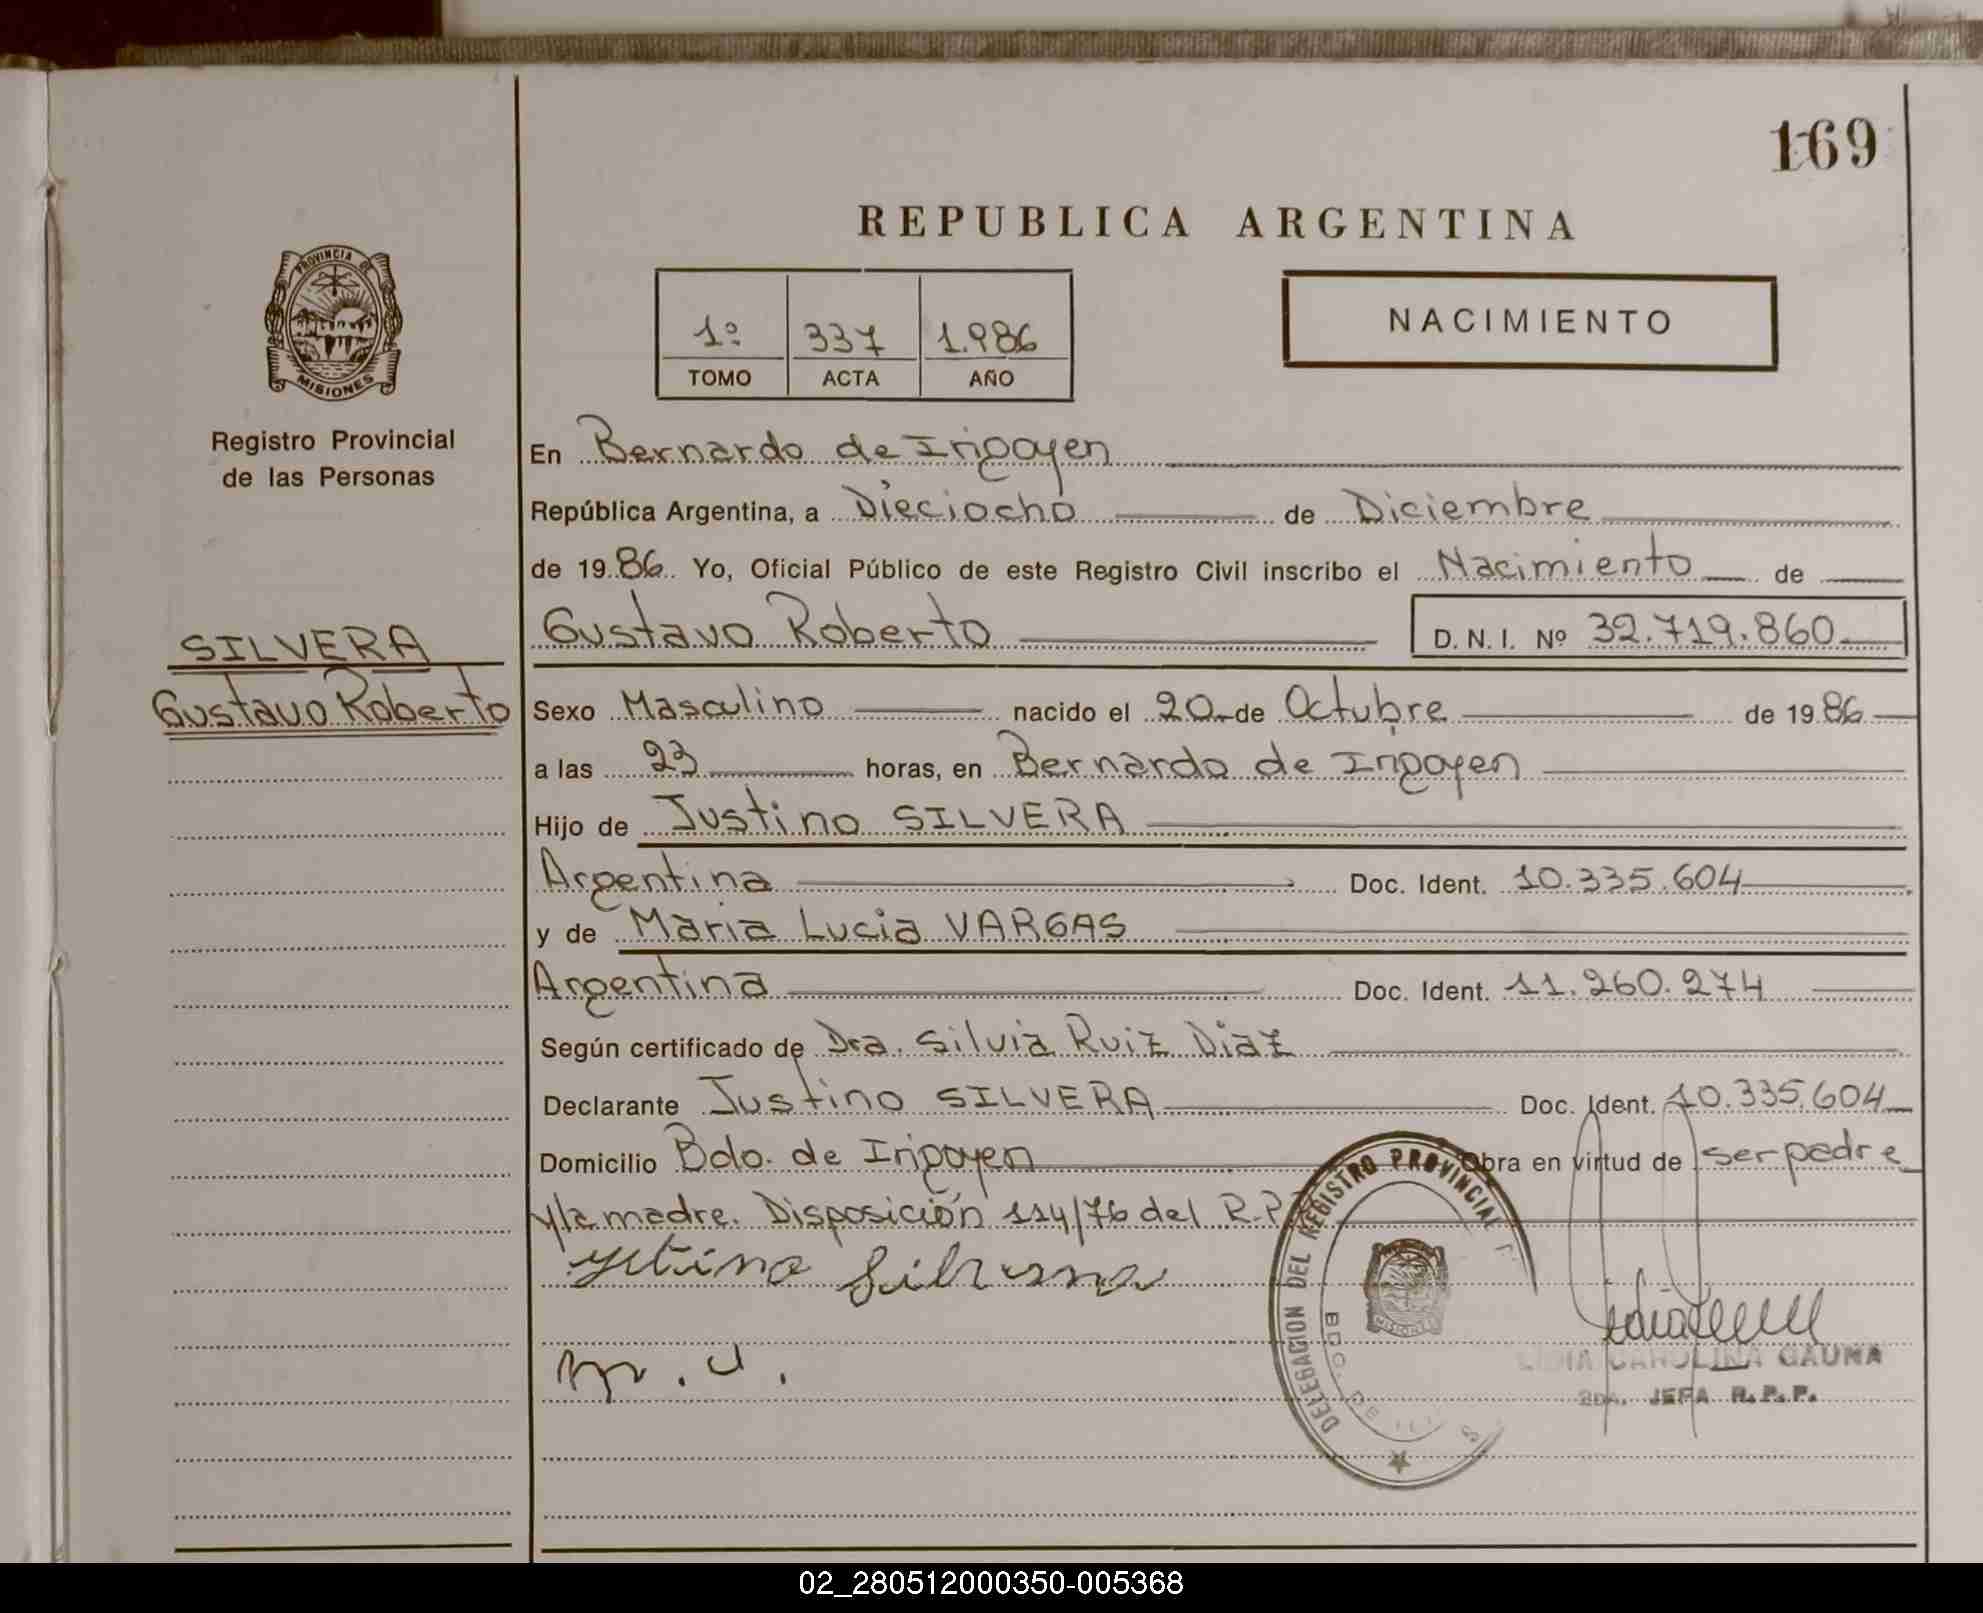 169
REPUBLICA ARGENTINA
PROVINCIA DE
MISIONES
Registro Provincial
de las Personas
1º 337 1.986
TOMO ACTA AÑO
NACIMIENTO
En Bernardo de Irigoyen
República Argentina, a Dieciocho de Diciembre
de 1986 Yo, Oficial Público de este Registro Civil inscribo el Nacimiento de
Gustavo Roberto D.N.I. Nº 32.719.860
SILVERA
Gustavo Roberto
Sexo Masculino nacido el 20 de Octubre de 1986
a las 23 horas, en Bernardo de Irigoyen
Hijo de Justino SILVERA
Argentina Doc. Ident. 10.335.604
y de Maria Lucia VARGAS
Argentina Doc. Ident. 11.260.274
Según certificado de Dra. Silvia Ruiz Diaz
Declarante Justino SILVERA Doc. Ident. 10.335.604
Domicilio Bdo. de Irigoyen Obra en virtud de ser padre
y la madre. Disposición 114/76 del R.P.
DELEGACION DEL REGISTRO PROVINCIAL
BDO. DE
MISIONES
LIDIA CAROLINA GAUNA
2DA. JEFA R.P.P.
02_280512000350-005368